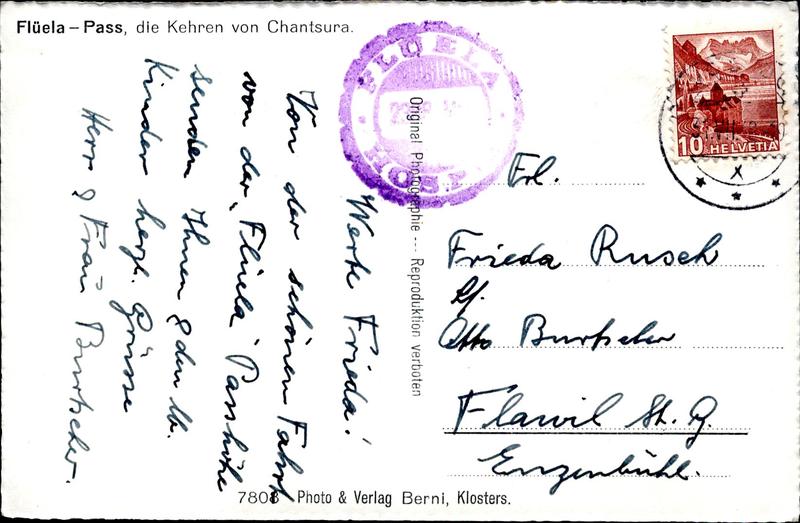 Flüela – Pass, die Kehren von Chantsura.
Werte Frieda!
Von der schönen Fahrt
von der „Flüela" Passhöhe
senden Ihnen & den lb.
Kinder herzl. Grüsse
Herr & Frau Burtscher.
FLÜELA
HOSPIZ
Original Photographie --- Reproduktion verboten
10 HELVETIA
Frl.
Frieda Rusch
Otto Burtscher
Flawil St. G.
Enzenbühl.
7808 Photo & Verlag Berni, Klosters.